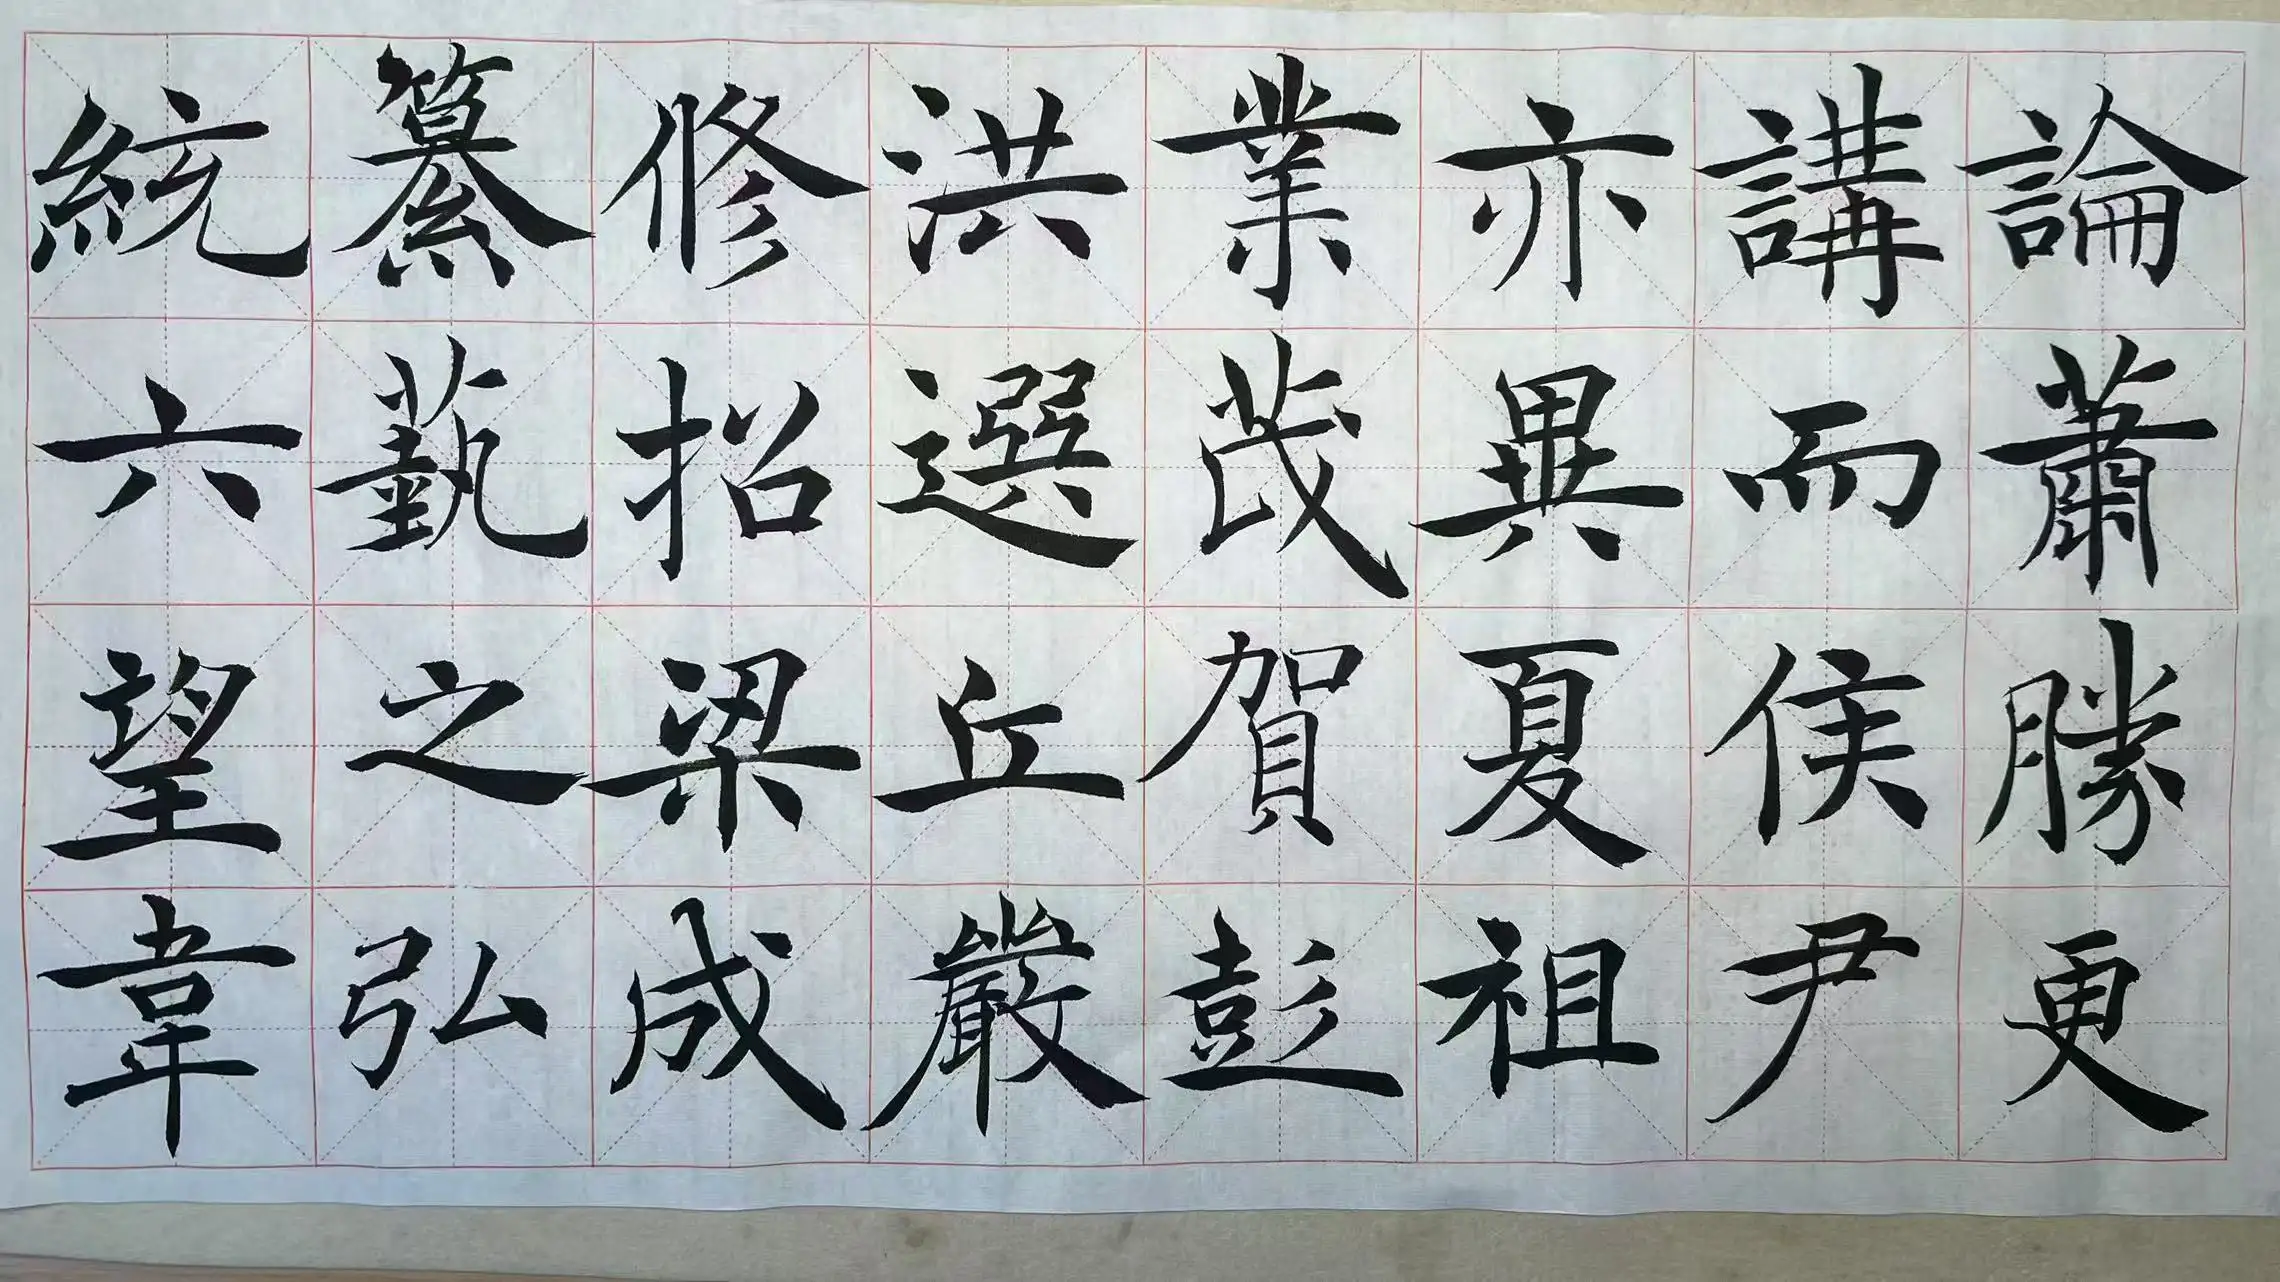 統纂修洪業亦講論
六蓺招選茂異而蕭
望之梁丘賀夏侯勝
韋弘成嚴彭祖尹更